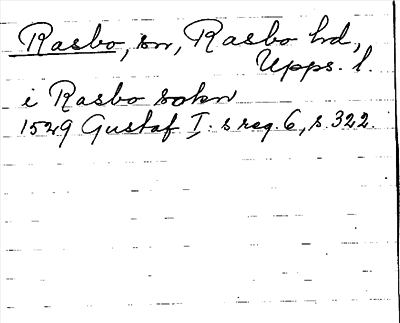 Rasbo, sn, Rasbo hd,
Upps. l.
i Rasbo sokn
1529 Gustaf I:s reg. 6, s. 322.